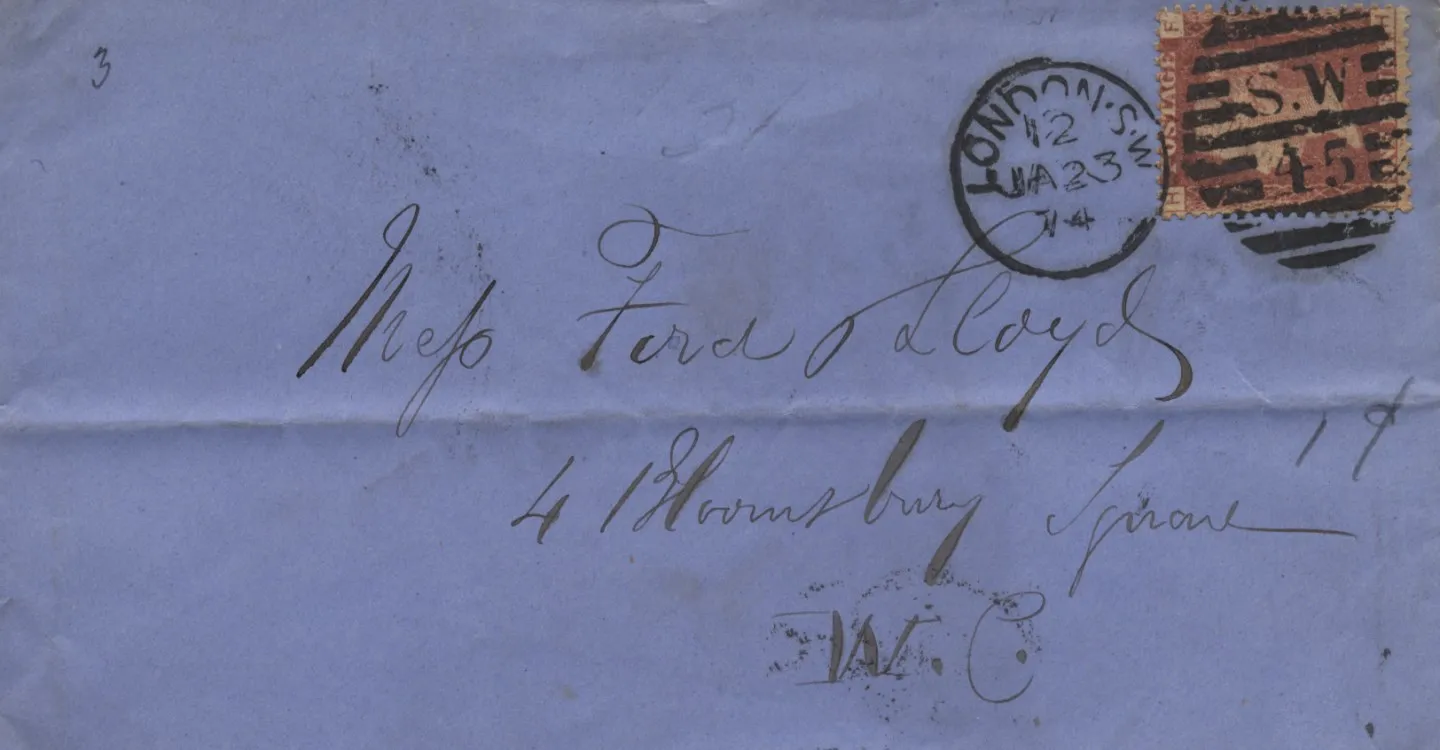 3
F
H
POSTAGE
S.W
45
LONDON·S.W
12
JA 23
74
Mess Ford & Lloyd
4 Bloomsbury Square
W. C.